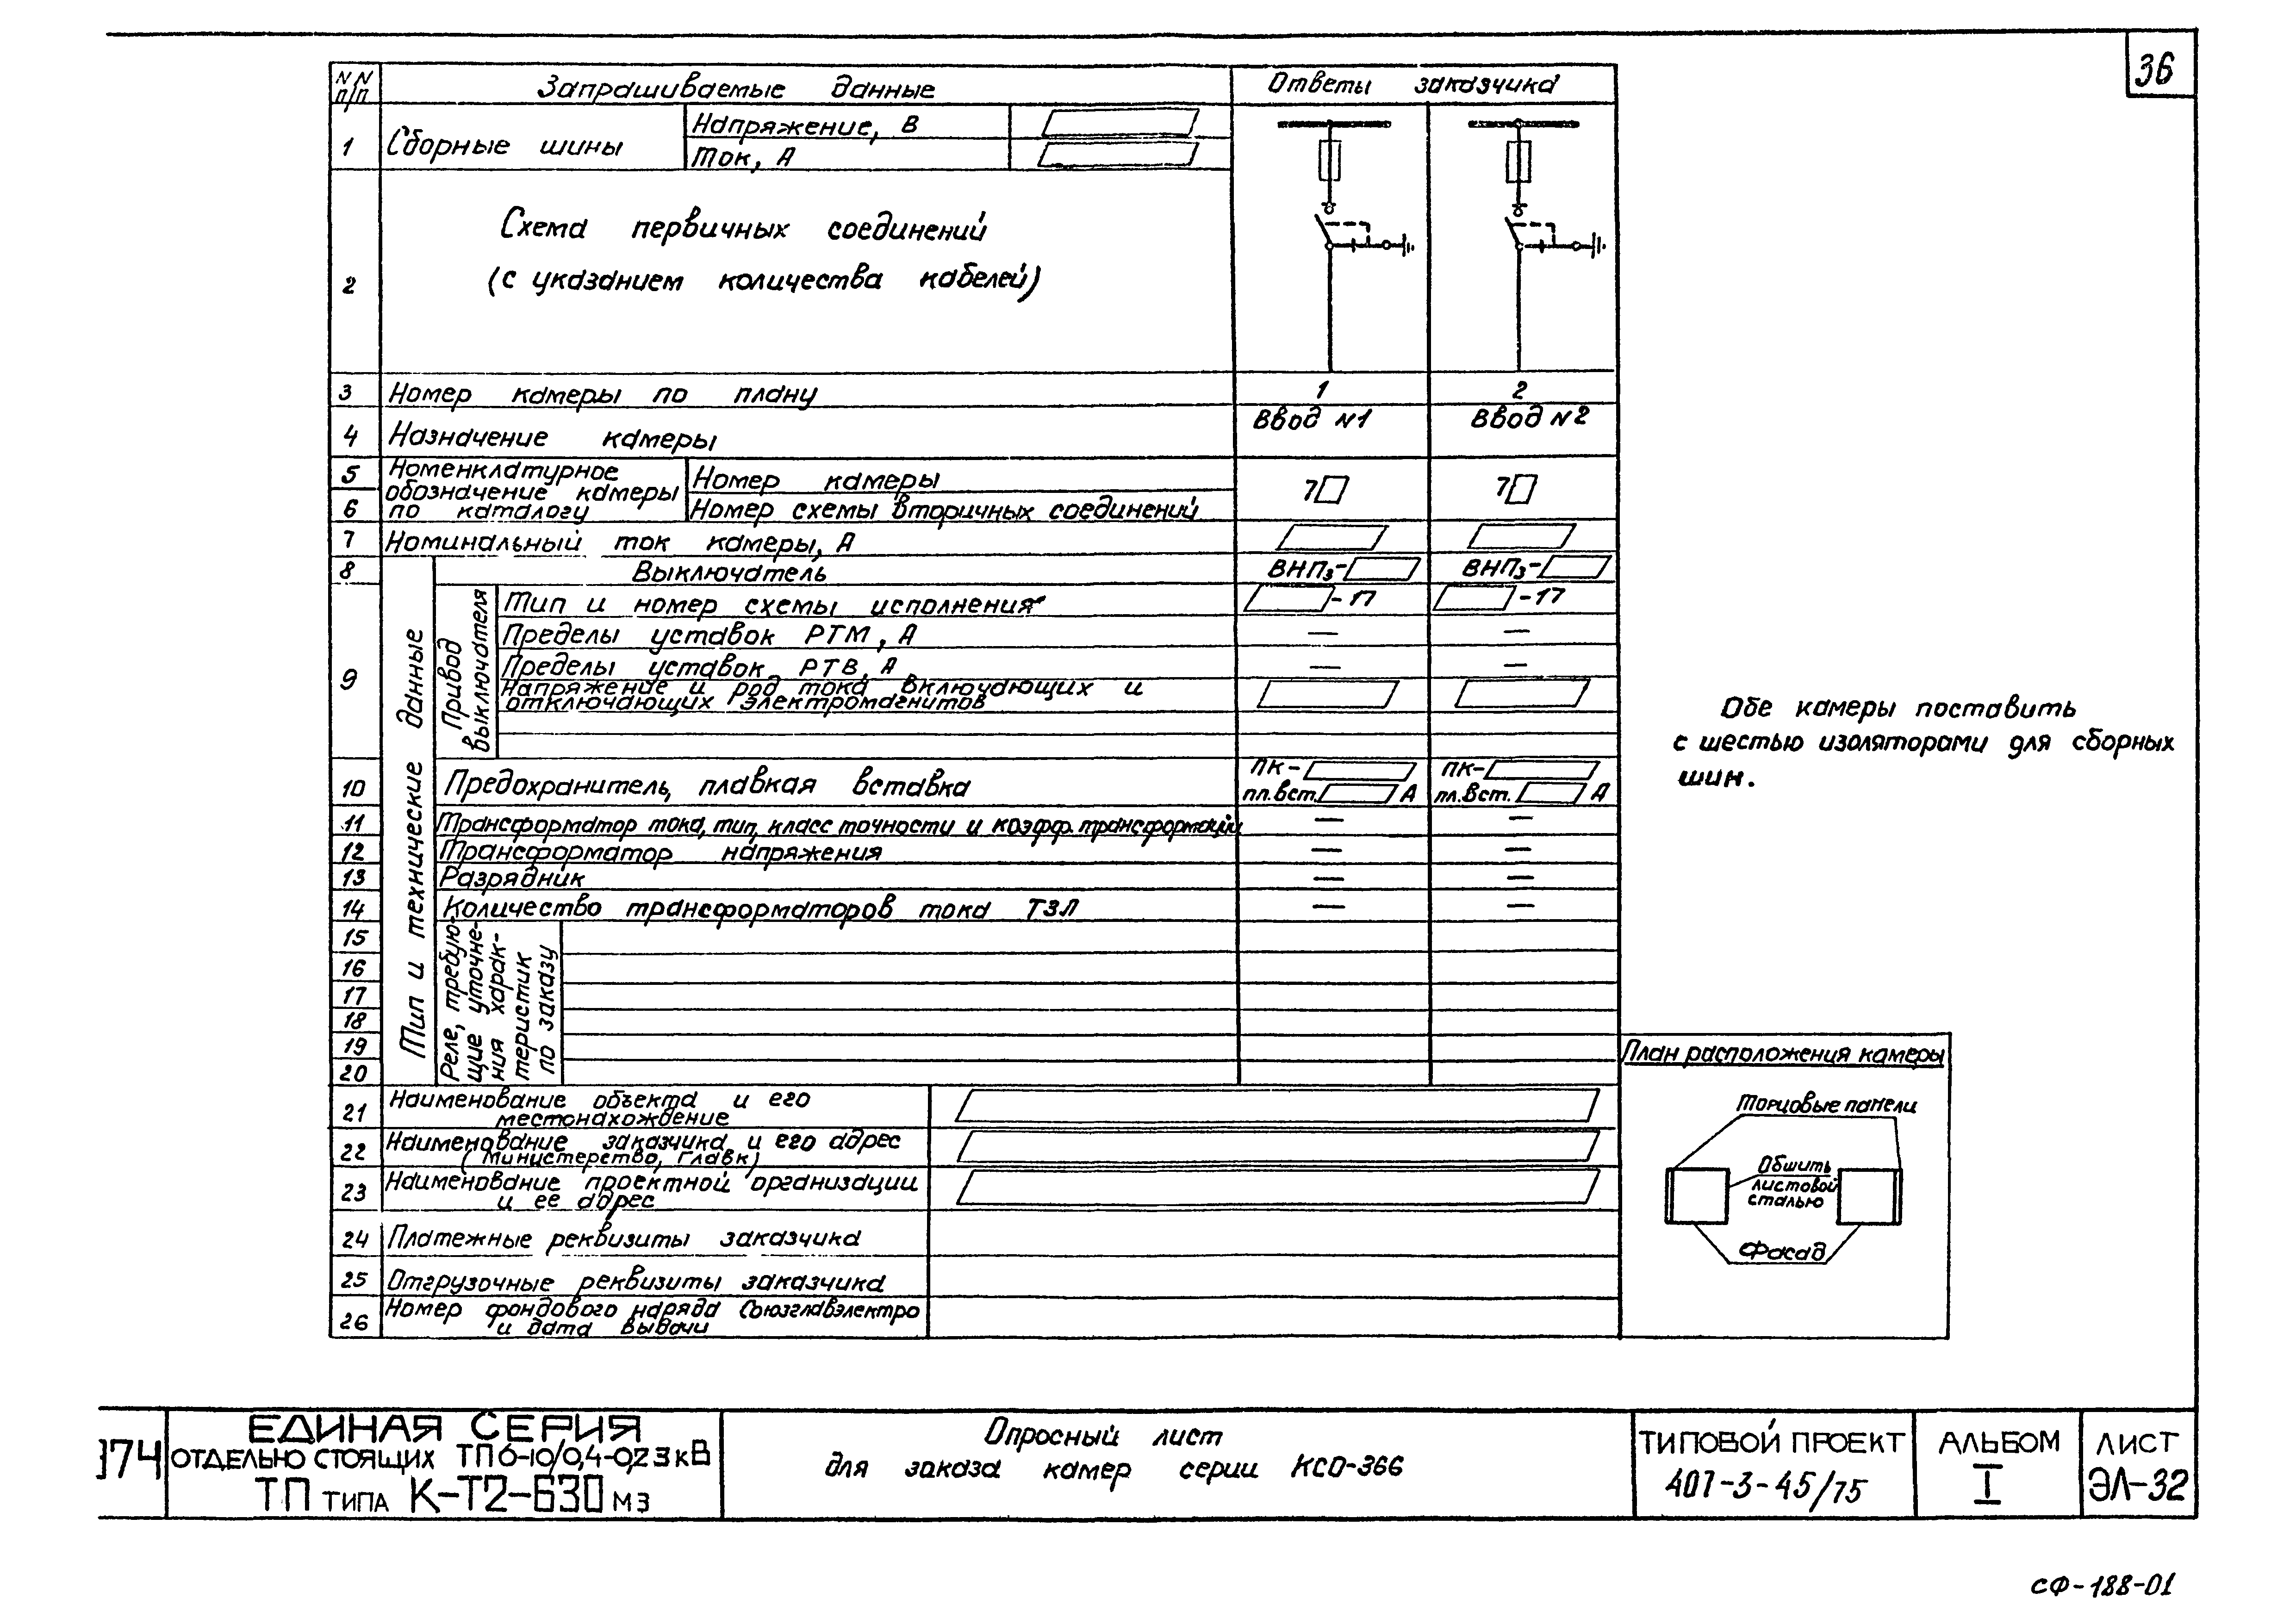 36
N N п/п
Запрашиваемые данные
Ответы заказчика
1
Сборные шины
Напряжение, В
Ток, А
2
Схема первичных соединений
(с указанием количества кабелей)
3
Номер камеры по плану
1
2
4
Назначение камеры
Ввод N1
Ввод N2
5
6
Номенклатурное
обозначение камеры
по каталогу
Номер камеры
Номер схемы вторичных соединений
7
7
7
Номинальный ток камеры, А
Тип и технические данные
8
Выключатель
ВНПз-
ВНПз-
9
Привод
выключателя
Тип и номер схемы исполнения
-17
-17
Пределы уставок РТМ, А
—
—
Пределы уставок РТВ, А
—
—
Напряжение и род тока включающих и
отключающих электромагнитов
10
Предохранитель, плавкая вставка
ПК-
ПК-
пл.вст. А
пл.вст. А
11
Трансформатор тока, тип, класс точности и коэфф. трансформации
—
—
12
Трансформатор напряжения
—
—
13
Разрядник
—
—
14
Количество трансформаторов тока ТЗЛ
—
—
Реле, требую-
щие уточне-
ния харак-
теристик
по заказу
15
16
17
18
19
20
21
Наименование объекта и его
местонахождение
22
Наименование заказчика и его адрес
(министерство, главк)
23
Наименование проектной организации
и ее адрес
24
Платежные реквизиты заказчика
25
Отгрузочные реквизиты заказчика
26
Номер фондового наряда Союзглавэлектро
и дата выдачи
Обе камеры поставить
с шестью изоляторами для сборных
шин.
План расположения камеры
Торцовые панели
Обшить
листовой
сталью
Фасад
974
ЕДИНАЯ СЕРИЯ
ОТДЕЛЬНО СТОЯЩИХ ТП 6-10/0,4-0,23 кВ
ТП ТИПА К-Т2-630 М3
Опросный лист
для заказа камер серии КСО-366
ТИПОВОЙ ПРОЕКТ
407-3-45/75
АЛЬБОМ
I
ЛИСТ
ЭЛ-32
СФ-188-01